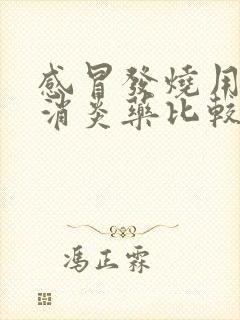 感冒發燒用
消炎藥比較
馮正霖